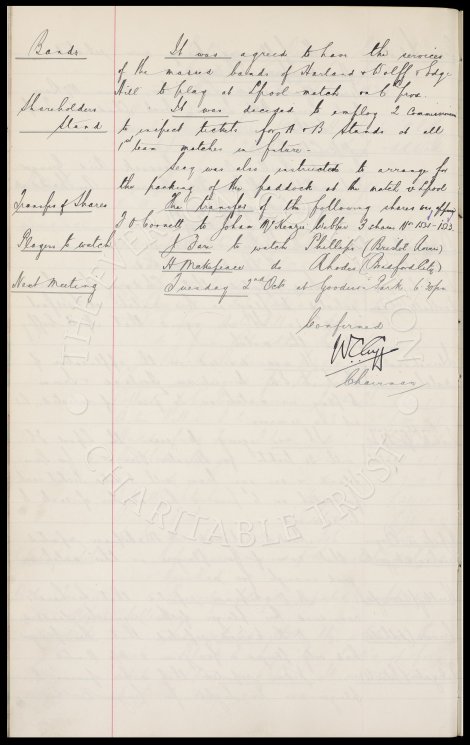 Bands It was agreed to have the services
of the massed bands of Harland & Wolff & Edge
Hill to play at L'pool match on 6th prox.
Shareholders Stand It was decided to employ 2 Commissionaires
to inspect tickets for A & B Stands at all
1st team matches in future.
Secy was also instructed to arrange for
the packing of the paddock at the match v L'pool
Transfer of Shares The transfer of the following shares was approved
J O'Connell to Johan McKenzie Cubbin 3 shares Nos 1531-1533
Players to watch N Fox to watch Phillips (Bristol Rovers)
H Makepeace do Rhodes (Bedford City)
Next Meeting Tuesday 2nd Oct at Goodison Park 6 30pm
Confirmed
W C Cuff
Chairman
THE
CHARITABLE TRUST